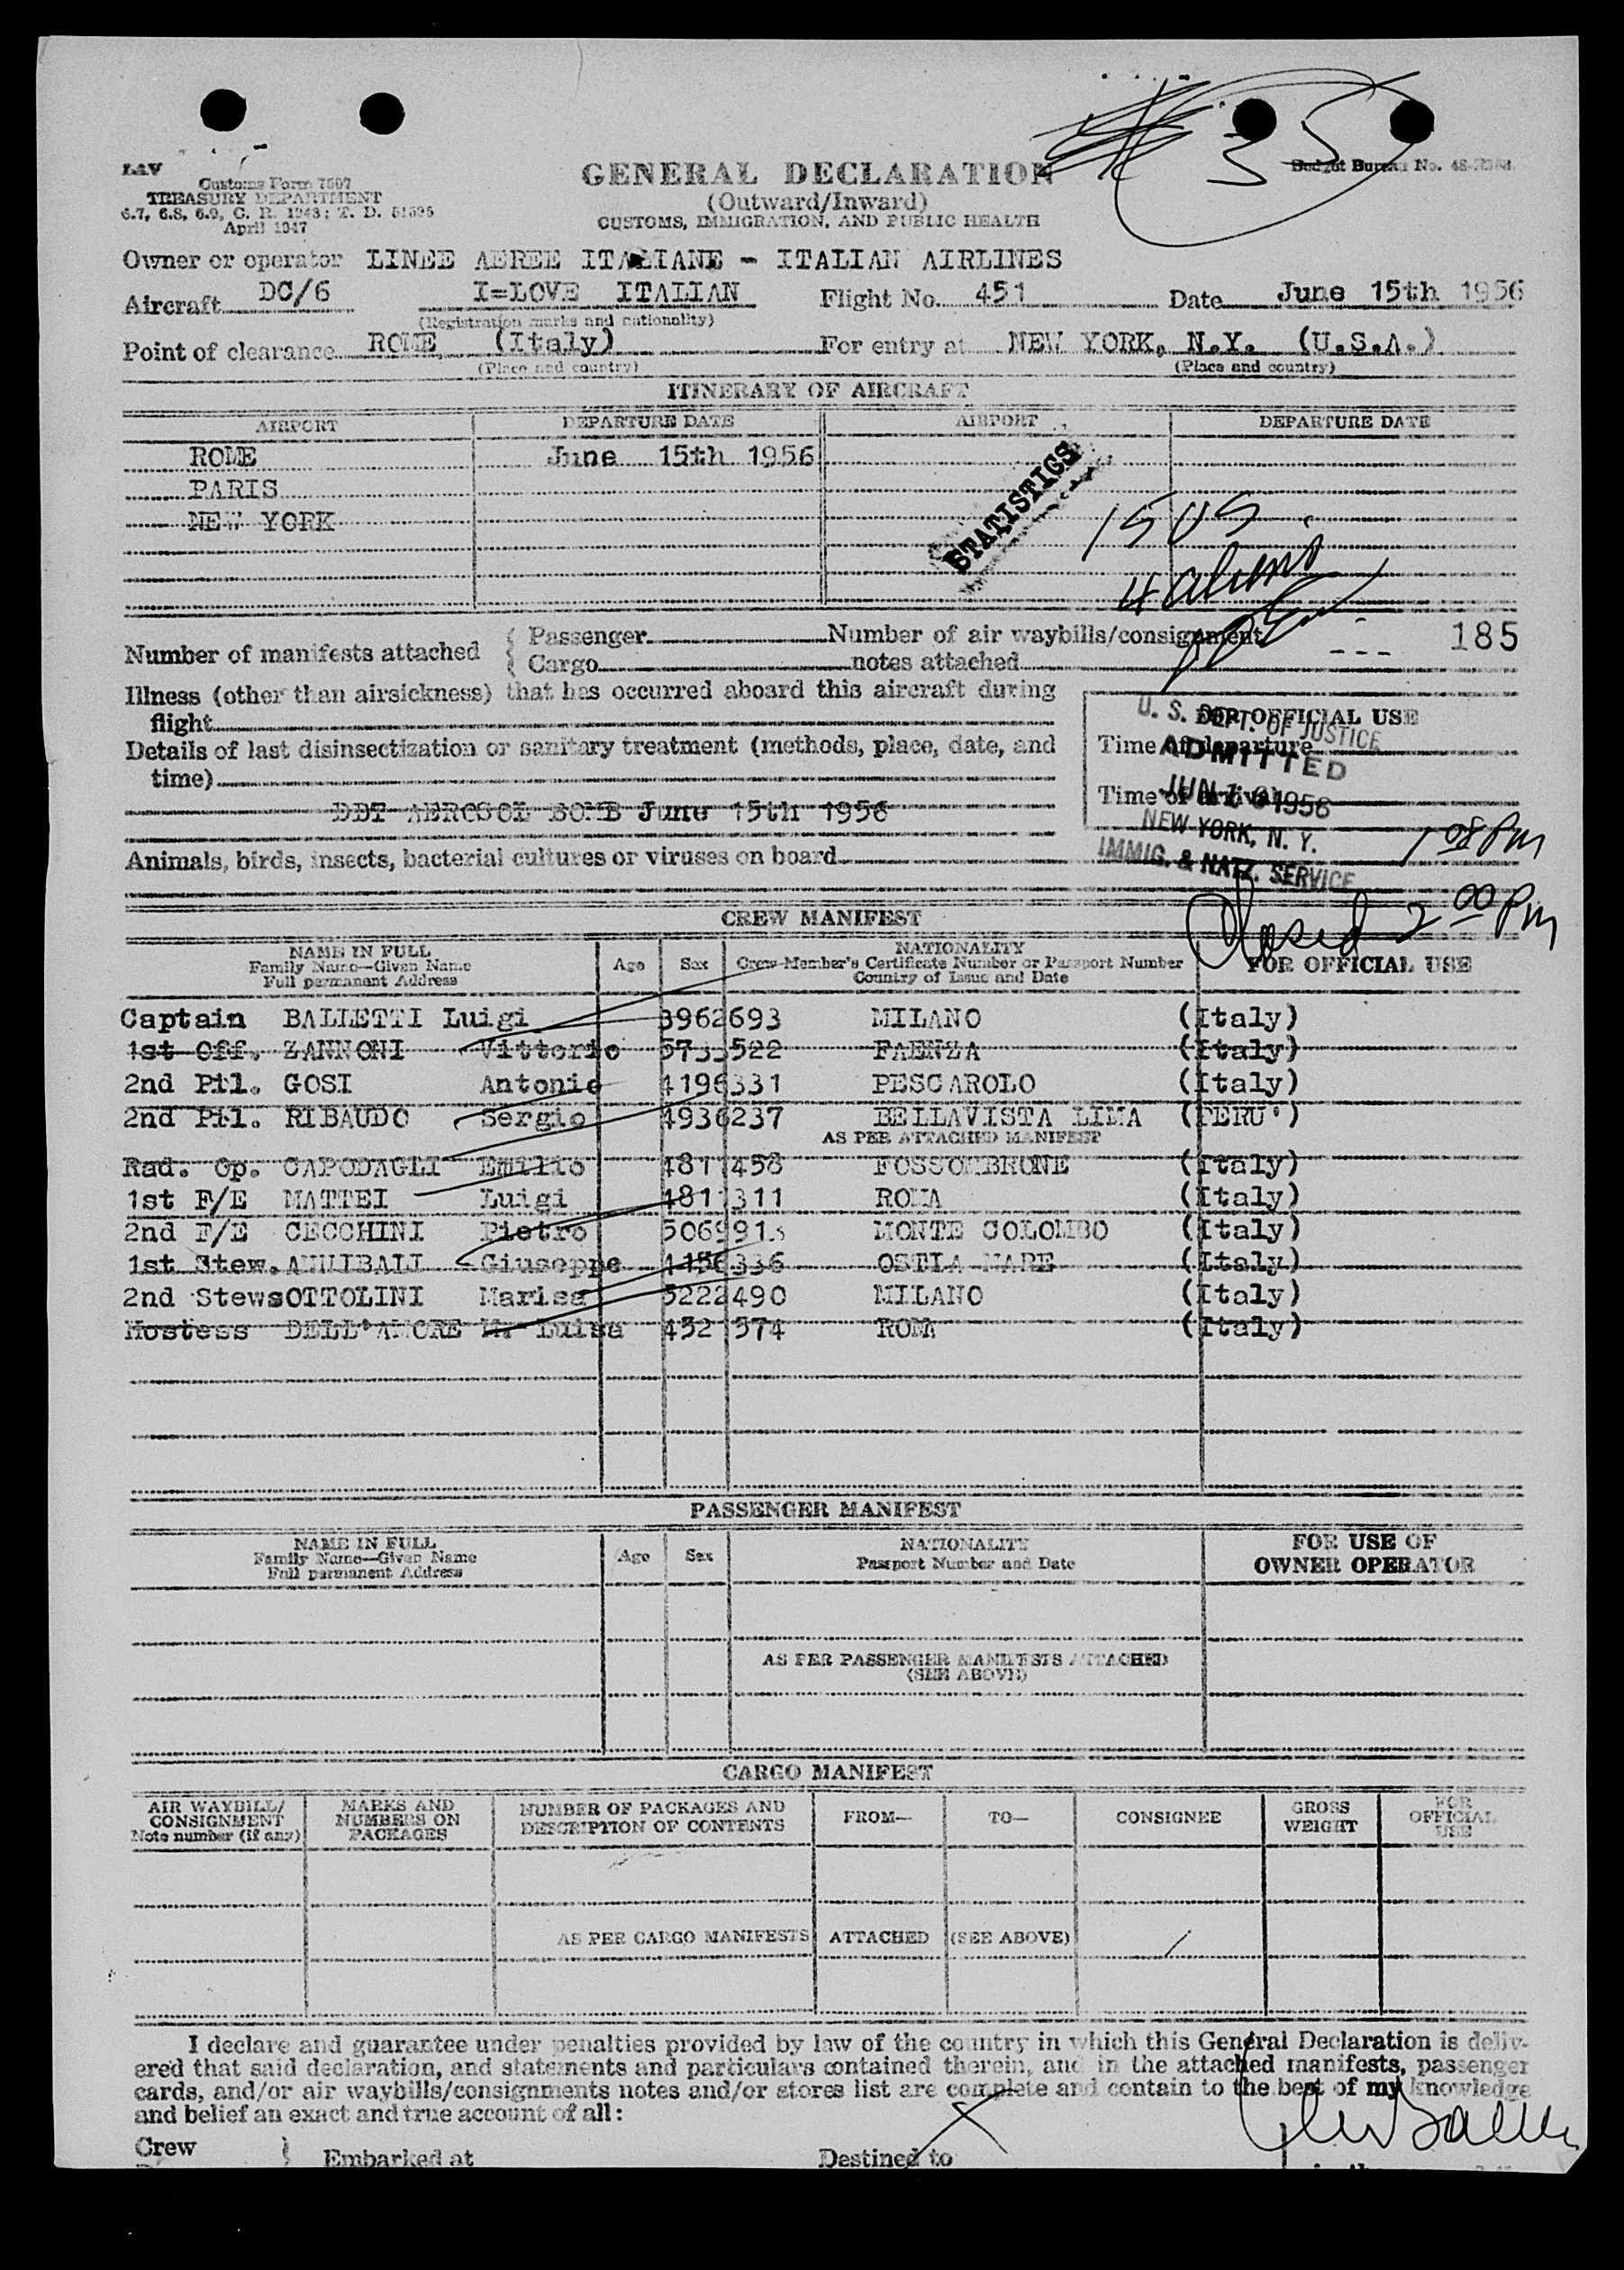 35
LAV
Customs Form 7507
TREASURY DEPARTMENT
6.7, 6.8, 6.9, C. R. 1943; T. D. 51525
April 1947
GENERAL DECLARATION
(Outward/Inward)
CUSTOMS, IMMIGRATION, AND PUBLIC HEALTH
Budget Bureau No. 48-
Owner or operator LINEE AEREE ITALIANE - ITALIAN AIRLINES
Aircraft DC/6 I=LOVE ITALIAN Flight No. 451 Date June 15th 1956
(Registration marks and nationality)
Point of clearance ROME (Italy) For entry at NEW YORK, N.Y. (U.S.A.)
(Place and country) (Place and country)
ITINERARY OF AIRCRAFT
AIRPORT DEPARTURE DATE AIRPORT DEPARTURE DATE
ROME June 15th 1956
PARIS
NEW YORK
STATISTICS
15 US
4 aliens
Number of manifests attached { Passenger Number of air waybills/consignment --- 185
Cargo notes attached
Illness (other than airsickness) that has occurred aboard this aircraft during
flight
Details of last disinsectization or sanitary treatment (methods, place, date, and
time)
DDT AEROSOL BOMB June 15th 1956
Animals, birds, insects, bacterial cultures or viruses on board
FOR OFFICIAL USE
Time of departure
Time of arrival
U. S. DEPT. OF JUSTICE
ADMITTED
JUN 1956
NEW YORK, N. Y.
IMMIG. & NATZ. SERVICE
1 08 Pm
Closed 2 00 Pm
CREW MANIFEST
NAME IN FULL
Family Name—Given Name
Full permanent Address
Age Sex
NATIONALITY
Crew Member's Certificate Number or Passport Number
Country of Issue and Date
FOR OFFICIAL USE
Captain BALLETTI Luigi 3962693 MILANO (Italy)
1st Off. ZANNONI Vittorio 5733522 FAENZA (Italy)
2nd Pil. GOSI Antonio 4196331 PESCAROLO (Italy)
2nd Pil. RIBAUDO Sergio 4936237 BELLAVISTA LIMA (PERU')
AS PER ATTACHED MANIFEST
Rad. Op. CAPODAGLI Emilio 4811458 FOSSOMBRONE (Italy)
1st F/E MATTEI Luigi 4811311 ROMA (Italy)
2nd F/E CECCHINI Pietro MONTE COLOMBO (Italy)
1st Stew. ANNIBALI Giuseppe 4156336 OSTIA MARE (Italy)
2nd Stews OTTOLINI Marisa 5222490 MILANO (Italy)
Hostess DELL'AMORE M. Luisa 452 574 ROMA (Italy)
PASSENGER MANIFEST
NAME IN FULL
Family Name—Given Name
Full permanent Address
Age Sex
NATIONALITY
Passport Number and Date
FOR USE OF
OWNER OPERATOR
AS PER PASSENGER MANIFESTS ATTACHED
(SEE ABOVE)
CARGO MANIFEST
AIR WAYBILL/
CONSIGNMENT
Note number (if any)
MARKS AND
NUMBERS ON
PACKAGES
NUMBER OF PACKAGES AND
DESCRIPTION OF CONTENTS
FROM— TO— CONSIGNEE
GROSS
WEIGHT
FOR
OFFICIAL
USE
AS PER CARGO MANIFESTS ATTACHED (SEE ABOVE)
I declare and guarantee under penalties provided by law of the country in which this General Declaration is deliv-
ered that said declaration, and statements and particulars contained therein, and in the attached manifests, passenger
cards, and/or air waybills/consignments notes and/or stores list are complete and contain to the best of my knowledge
and belief an exact and true account of all:
Crew } Embarked at Destined to